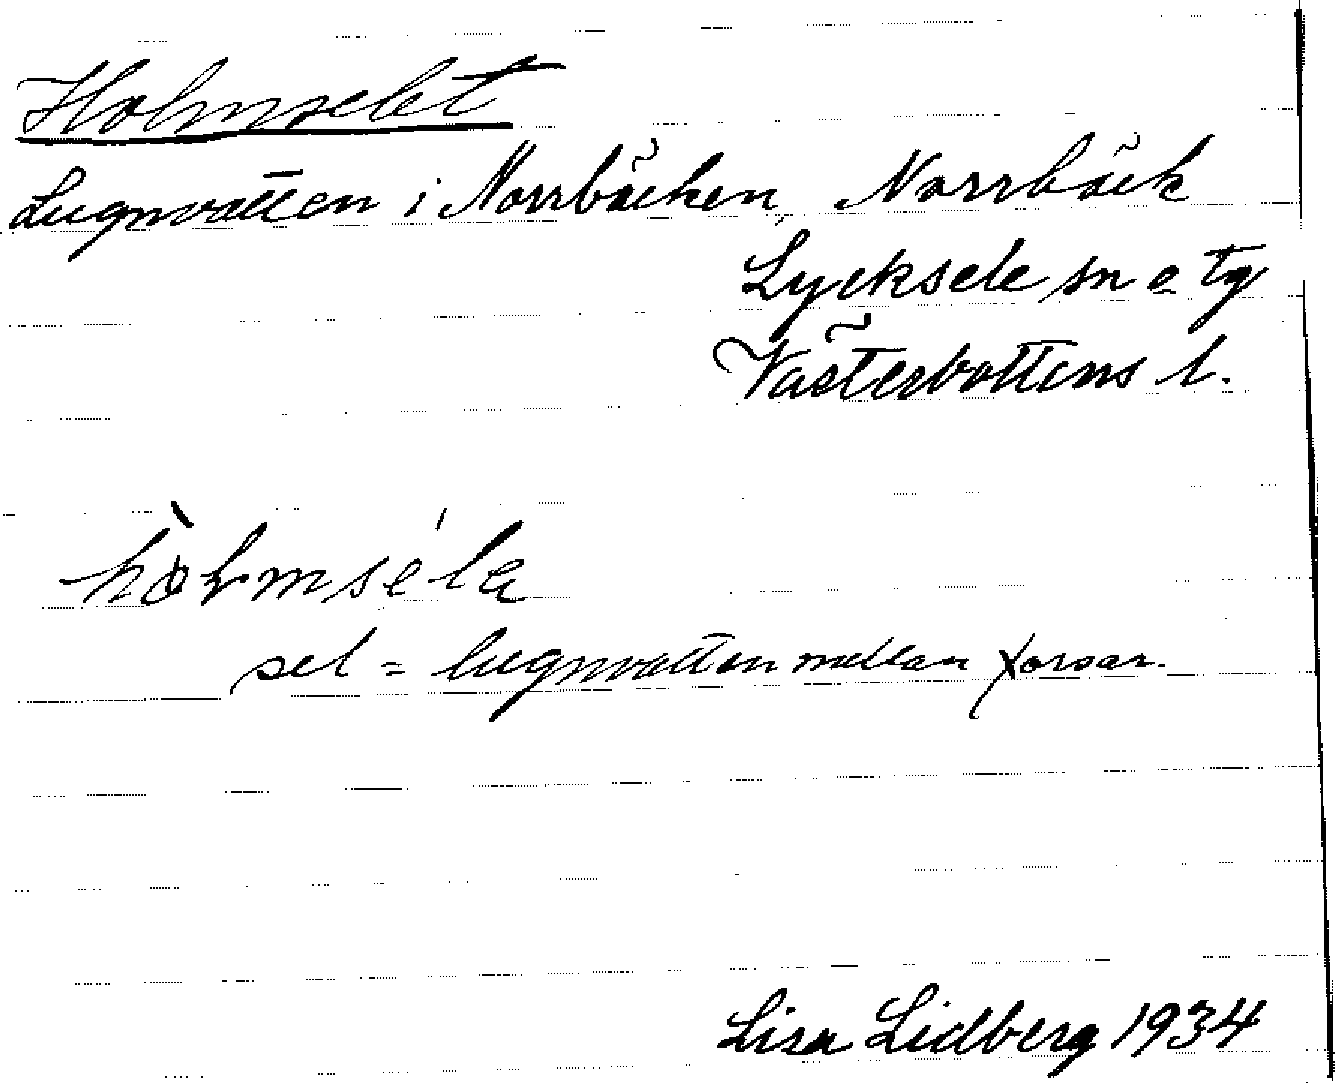 Holmselet
Lugnvatten i Norrbäcken, Norrbäck
Lycksele sn o tg
Västerbottens l.
hòlmsé'la
sel = lugnvatten mellan forsar.
Lisa Lidberg 1934